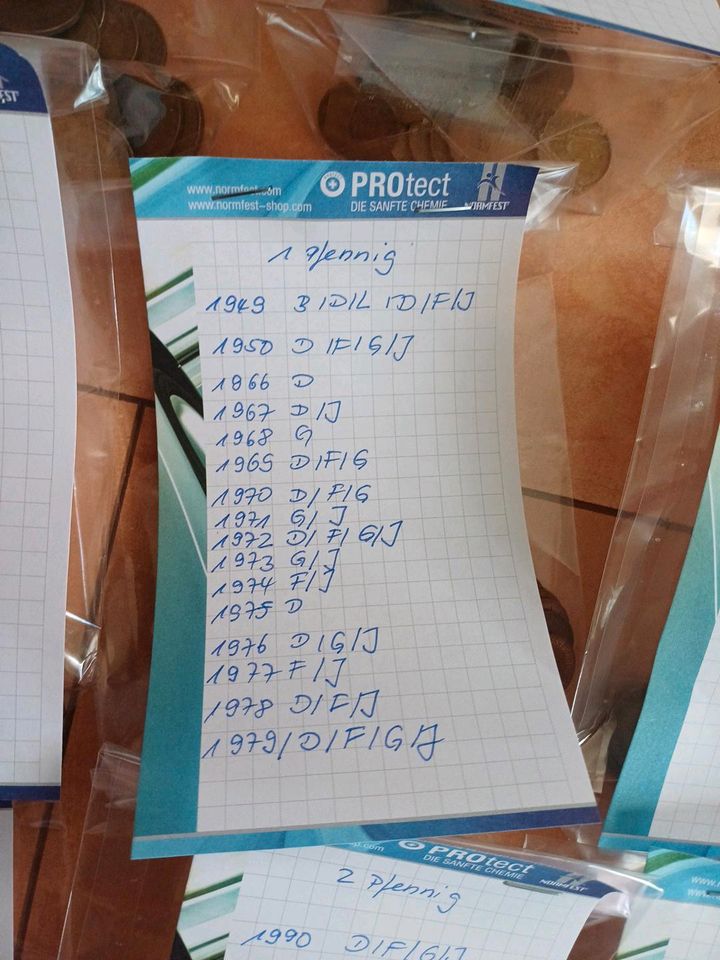 www.normfest.com
www.normfest-shop.com
PROtect
DIE SANFTE CHEMIE
NORMFEST
1 Pfennig
1949 B/D/L /D/F/J
1950 D/F/G/J
1966 D
1967 D/J
1968 G
1969 D/F/G
1970 D/F/G
1971 G/J
1972 D/F/G/J
1973 G/J
1974 F/J
1975 D
1976 D/G/J
1977 F/J
1978 D/F/J
1979/D/F/G/J
PROtect
DIE SANFTE CHEMIE
NORMFEST
2 Pfennig
1990 D/F/G/J